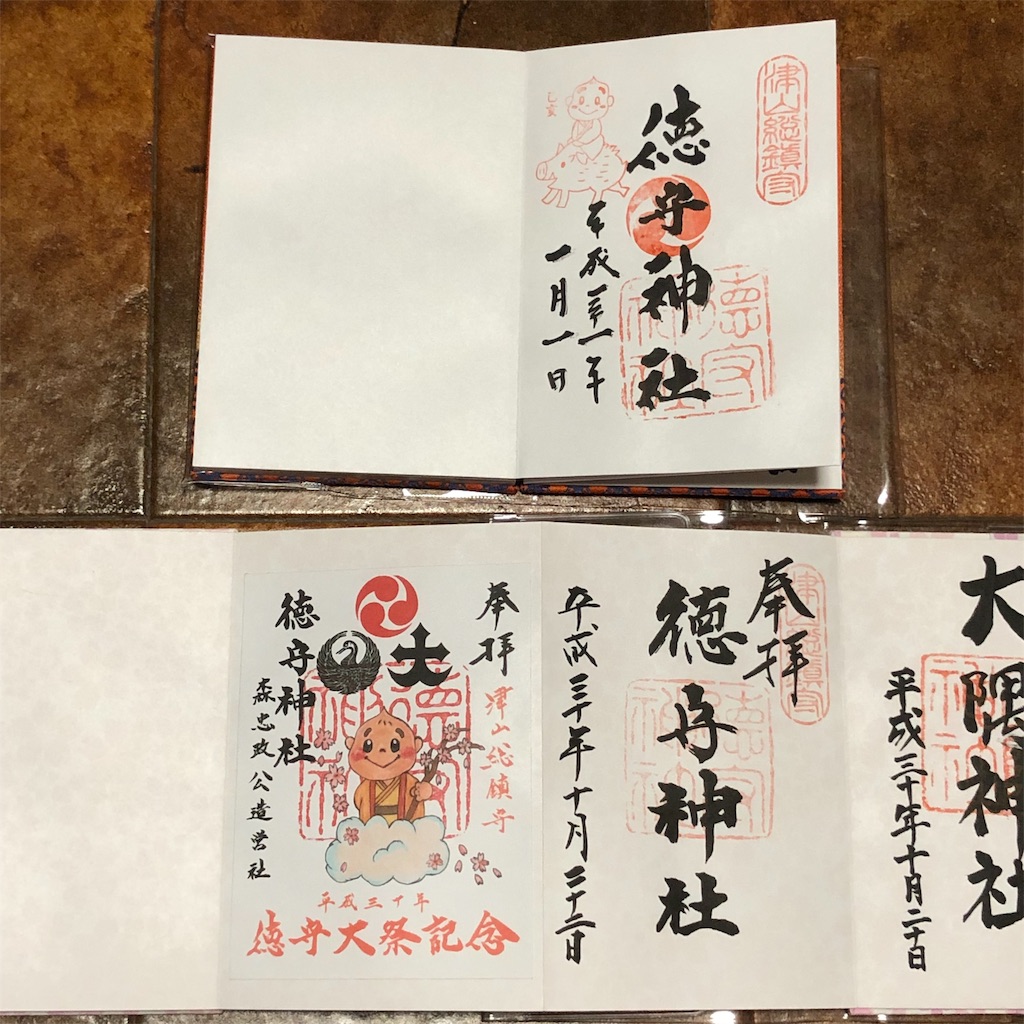 津山総鎮守
徳守神社
徳守
神社
平成三十一年
一月一日
己亥
大隅神社
平成三十年十月二十日
奉拝
津山総鎮守
徳守神社
徳守
神社
平成三十年十月二十二日
奉拝
津山総鎮守
徳守
神社
徳守神社
森忠政公造営社
平成三十年
徳守大祭記念